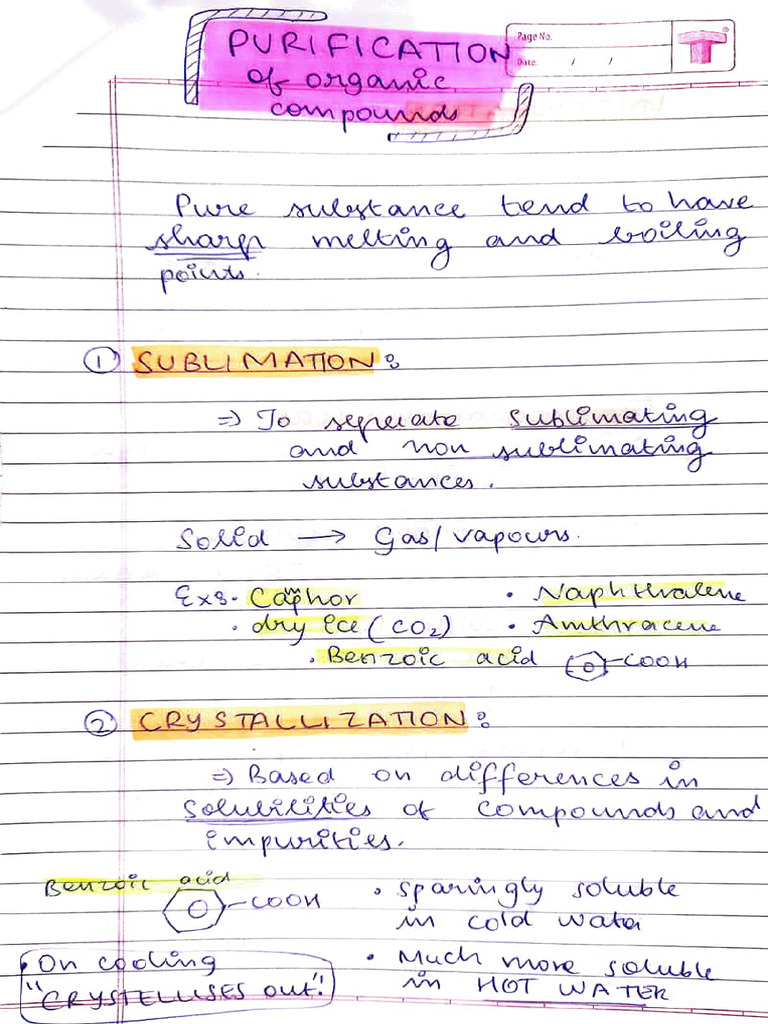 PURIFICATION
of organic
compounds
Page No.
Date: / /
Pure substance tend to have
sharp melting and boiling
points.
① SUBLIMATION:
⇒ To seperate sublimating
and non sublimating
substances.
Solid → Gas/vapours.
Exs. Camphor • Naphthalene
• dry ice (CO₂) • Anthracene
• Benzoic acid -COOH
② CRYSTALLIZATION:
⇒ Based on differences in
solubilities of compounds and
impurities.
Benzoic acid -COOH
• sparingly soluble
in cold water
• Much more soluble
in HOT WATER
• On cooling
"CRYSTELLISES out"!